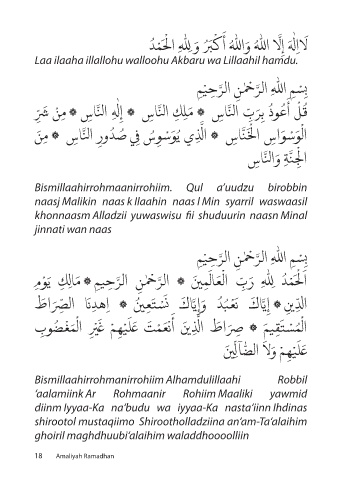 لَاإِلٰهَ إِلَّا اللهُ وَاللهُ أَكْبَرُ وَلِلّٰهِ الْحَمْدُ
Laa ilaaha illallohu walloohu Akbaru wa Lillaahil hamdu.
بِسْمِ اللهِ الرَّحْمٰنِ الرَّحِيْمِ
قُلْ أَعُوذُ بِرَبِّ النَّاسِ * مَلِكِ النَّاسِ * إِلٰهِ النَّاسِ * مِنْ شَرِّ
الْوَسْوَاسِ الْخَنَّاسِ * الَّذِي يُوَسْوِسُ فِي صُدُورِ النَّاسِ * مِنَ
الْجِنَّةِ وَالنَّاسِ
Bismillaahirrohmaanirrohiim. Qul a'uudzu birobbin
naasj Malikin naas k Ilaahin naas l Min syarril waswaasil
khonnaasm Alladzii yuwaswisu fii shuduurin naasn Minal
jinnati wan naas
بِسْمِ اللهِ الرَّحْمٰنِ الرَّحِيْمِ
الْحَمْدُ لِلّٰهِ رَبِّ الْعَالَمِينَ * الرَّحْمٰنِ الرَّحِيْمِ * مَالِكِ يَوْمِ
الدِّينِ * إِيَّاكَ نَعْبُدُ وَإِيَّاكَ نَسْتَعِينُ * اِهْدِنَا الصِّرَاطَ
الْمُسْتَقِيمَ * صِرَاطَ الَّذِينَ أَنْعَمْتَ عَلَيْهِمْ غَيْرِ الْمَغْضُوبِ
عَلَيْهِمْ وَلَا الضَّآلِّينَ
Bismillaahirrohmanirrohiim Alhamdulillaahi Robbil
'aalamiink Ar Rohmaanir Rohiim Maaliki yawmid
diinm Iyyaa-Ka na'budu wa iyyaa-Ka nasta'iinn Ihdinas
shirootol mustaqiimo Shirootholladziina an'am-Ta'alaihim
ghoiril maghdhuubi'alaihim waladdhoooolliin
18 Amaliyah Ramadhan